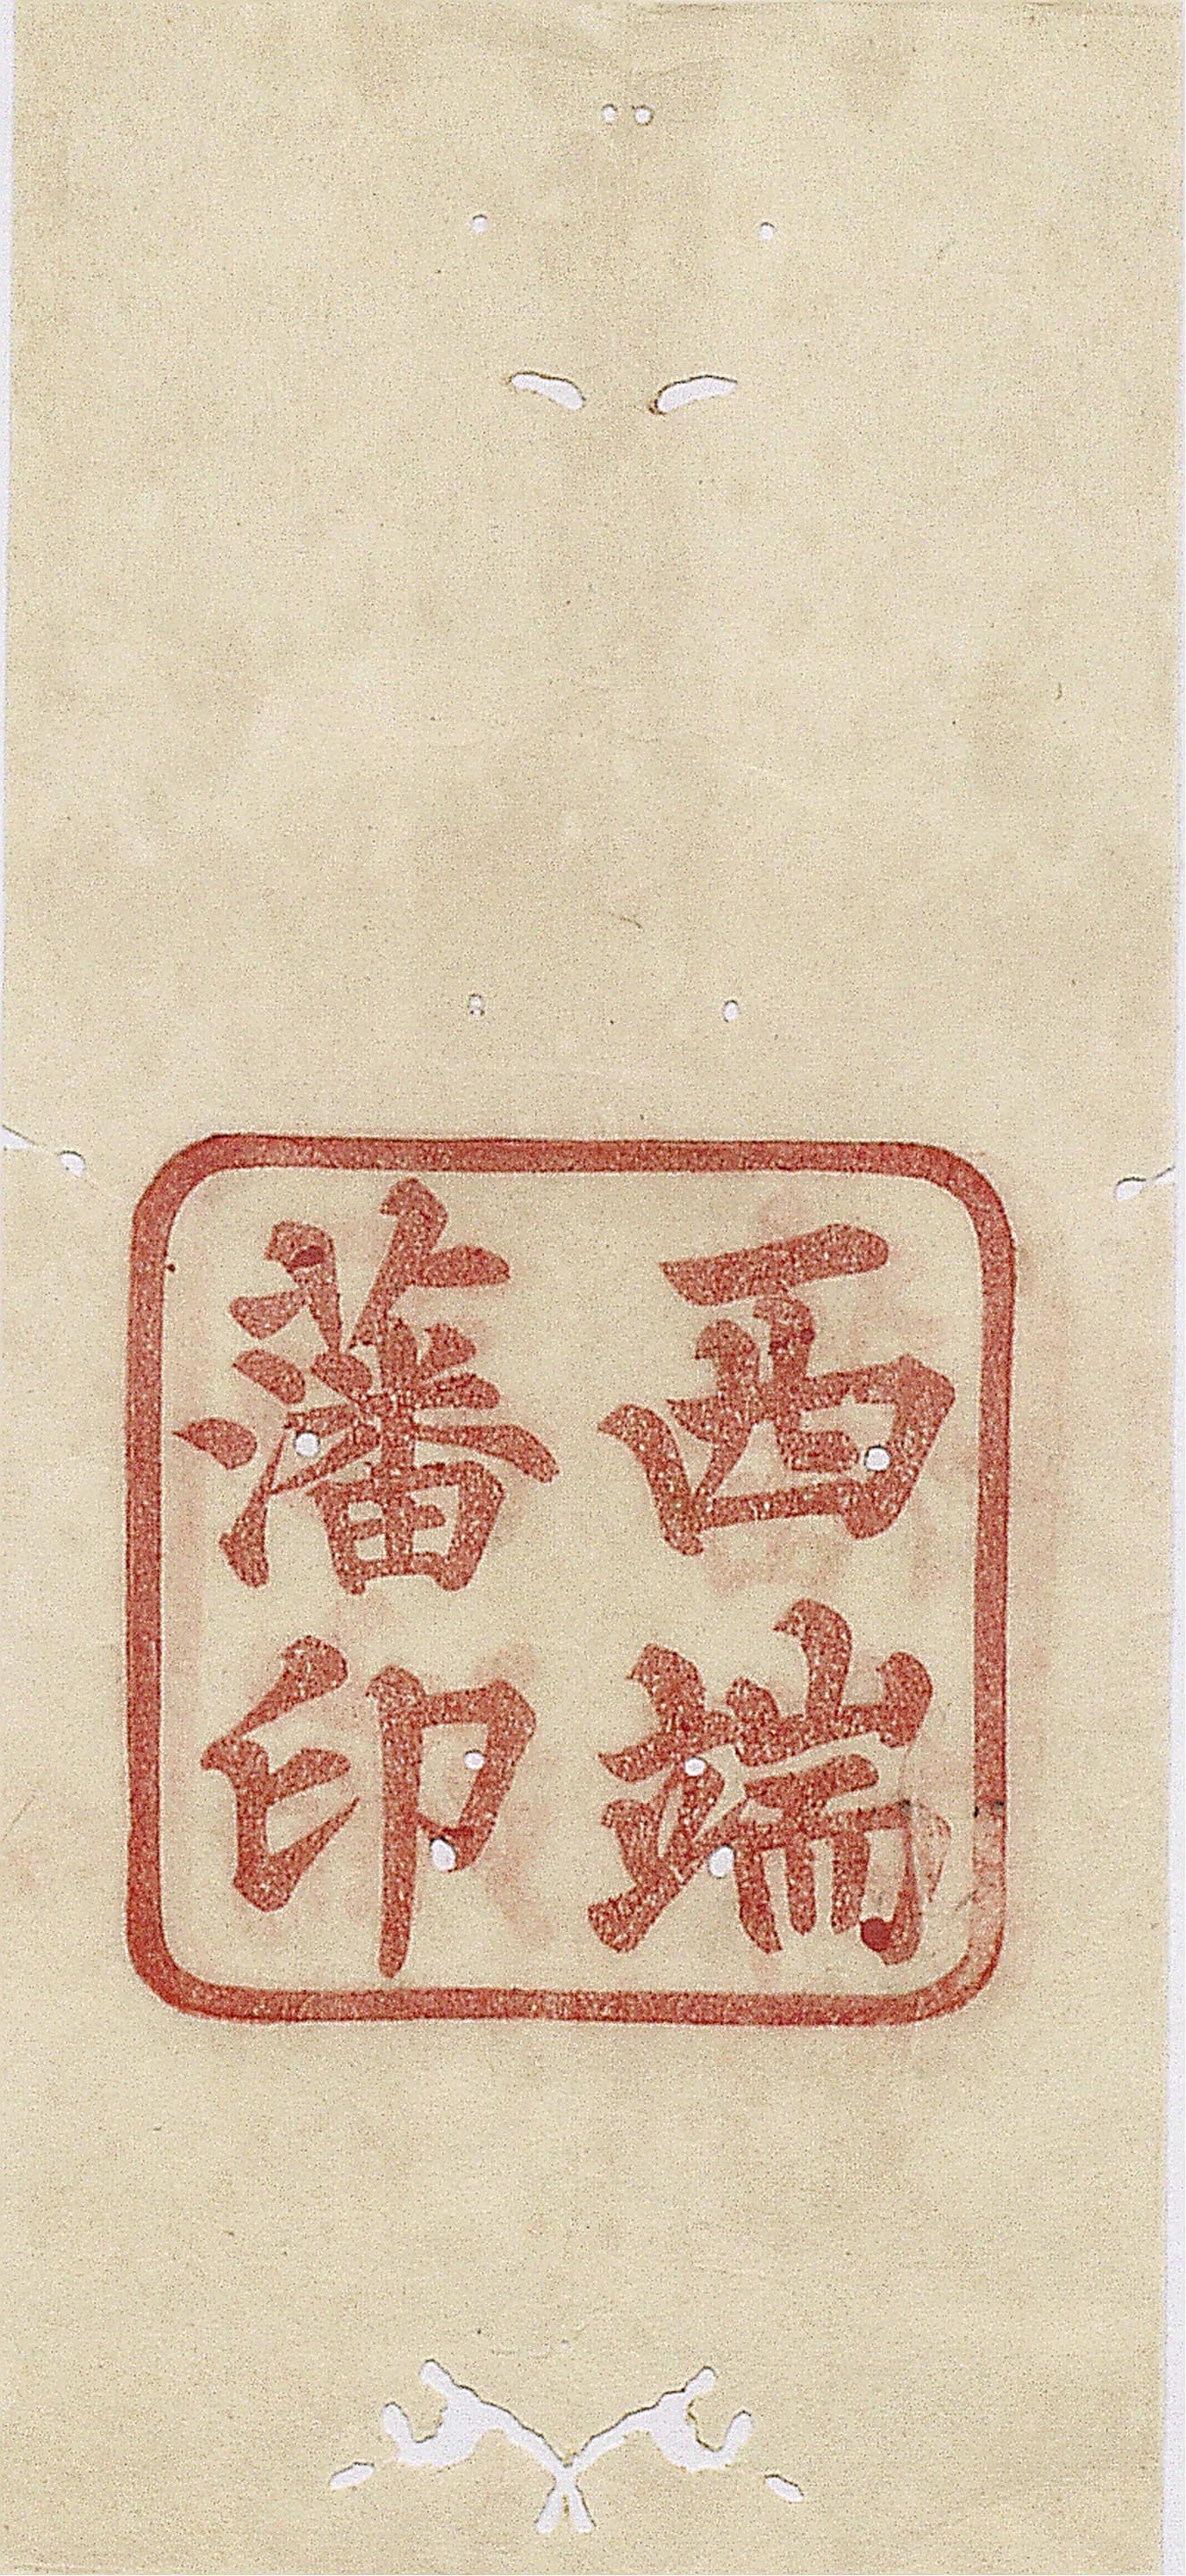 西端
藩印